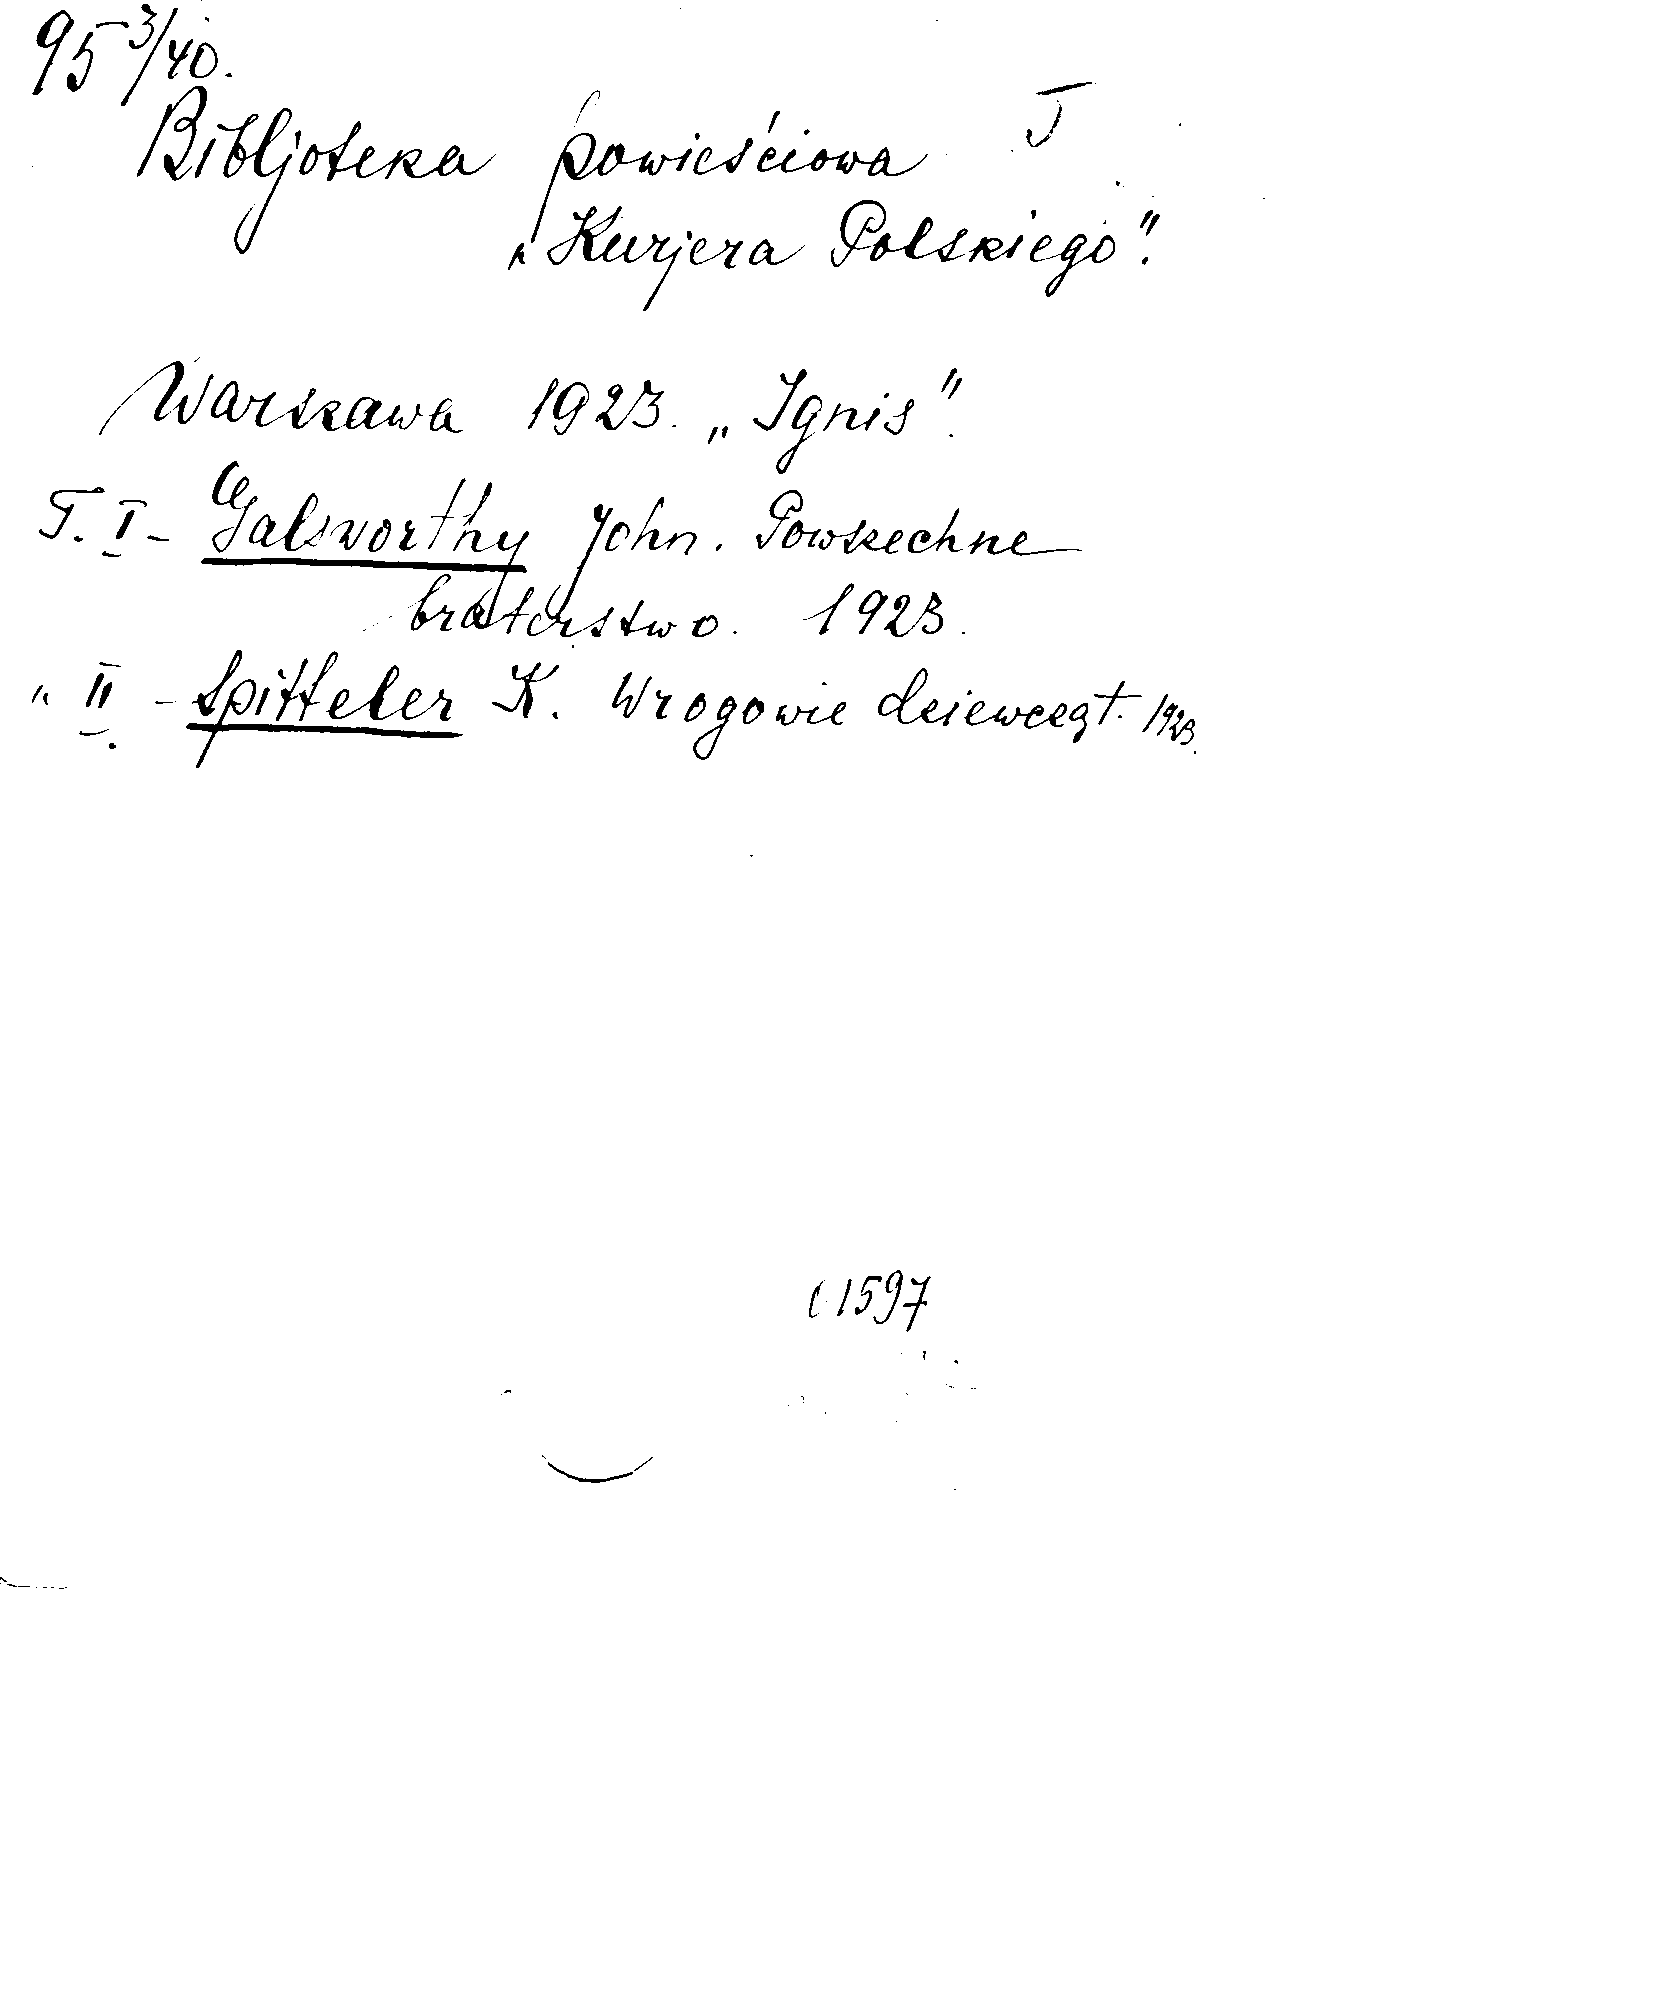 95 3/40.
J
Bibljoteka powieściowa
„Kurjera Polskiego".
Warszawa 1923. „Ignis".
T. I - Galsworthy John. Powszechne
braterstwo. 1923.
" II - Spitteler K. Wrogowie dziewcząt. 1923.
1597